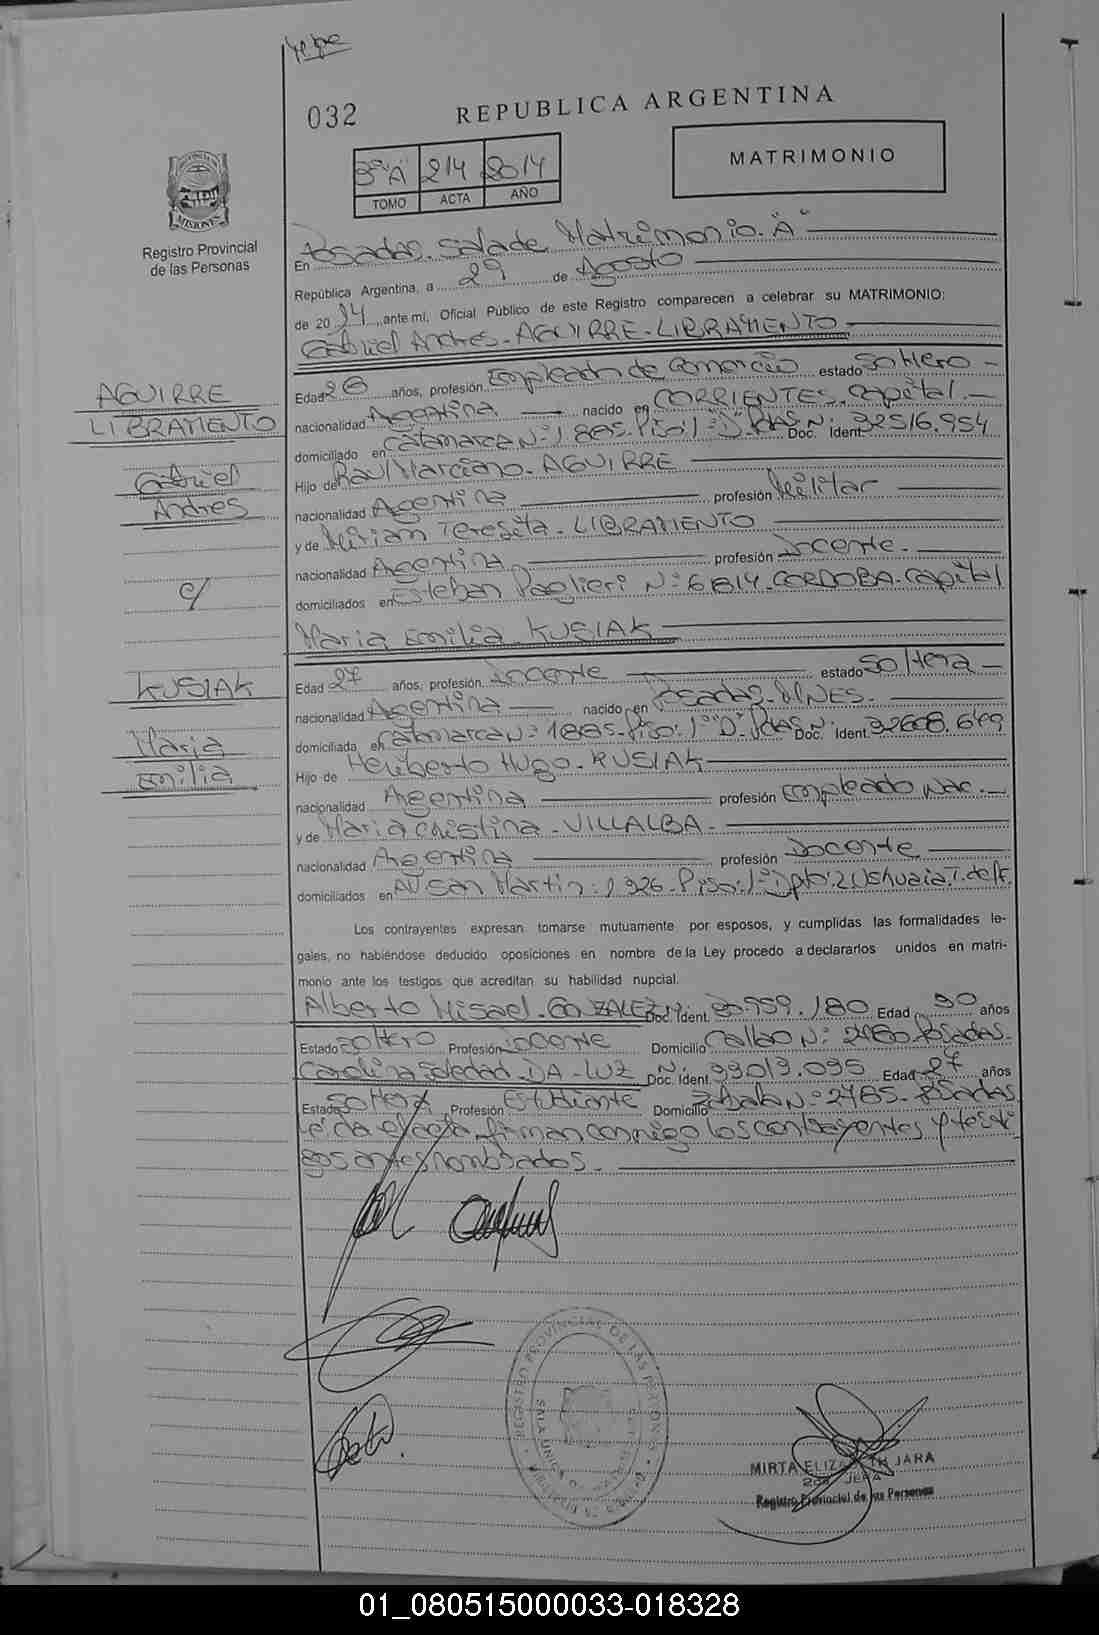 032
REPUBLICA ARGENTINA
MATRIMONIO
3º"A" 214 2014
TOMO ACTA AÑO
MISIONES
Registro Provincial
de las Personas
En Posadas. Sala de Matrimonio "A"
República Argentina, a 29 de Agosto
de 2014, ante mi, Oficial Público de este Registro comparecen a celebrar su MATRIMONIO:
Gabriel Andres - AGUIRRE - LIBRAMENTO
AGUIRRE
LIBRAMENTO
Gabriel
Andres
c/
KUSIAK
Maria
Emilia
Edad 26 años, profesión Empleado de Comercio estado Soltero
nacionalidad Argentina nacido en CORRIENTES. Capital.
domiciliado en Catamarca Nº 1885- Piso: 1º "D"- Pdas Doc. Ident. Nº 32516.954
Hijo de Raul Marciano - AGUIRRE
nacionalidad Argentina profesión Militar
y de Miriam Teresita - LIBRAMENTO
nacionalidad Argentina profesión Docente.
domiciliados en Esteban Paglieri Nº 6814. CORDOBA. Capital
Maria Emilia - KUSIAK
Edad 27 años, profesión Docente estado Soltera
nacionalidad Argentina nacido en Posadas. MNES.
domiciliada en Catamarca Nº 1885- Piso: 1º "D"- Pdas Doc. Ident. Nº 32608.649
Hijo de Heriberto Hugo - KUSIAK
nacionalidad Argentina profesión Empleado Nac.
y de Maria Cristina - VILLALBA
nacionalidad Argentina profesión Docente
domiciliados en Av San Martin: 1326- Piso: 1º Dpto: 2 Ushuaia T. del F.
Los contrayentes expresan tomarse mutuamente por esposos, y cumplidas las formalidades le-
gales, no habiéndose deducido oposiciones en nombre de la Ley procedo a declararlos unidos en matri-
monio ante los testigos que acreditan su habilidad nupcial.
Alberto Misael - GONZALEZ Doc. Ident. Nº 30.959.180 Edad 30 años
Estado Soltero Profesión Docente Domicilio Callao Nº 2460- Posadas.
Carolina Soledad - DA - LUZ Doc. Ident. Nº 33013.095 Edad 27 años
Estado Soltera Profesión Estudiante Domicilio Nº 2765- Posadas
Leida el acta, firman conmigo los contrayentes y testi-
gos antes nombrados.
REGISTRO PROVINCIAL DE LAS PERSONAS
MIRTA JARA
Registro Provincial de las Personas
01_080515000033-018328